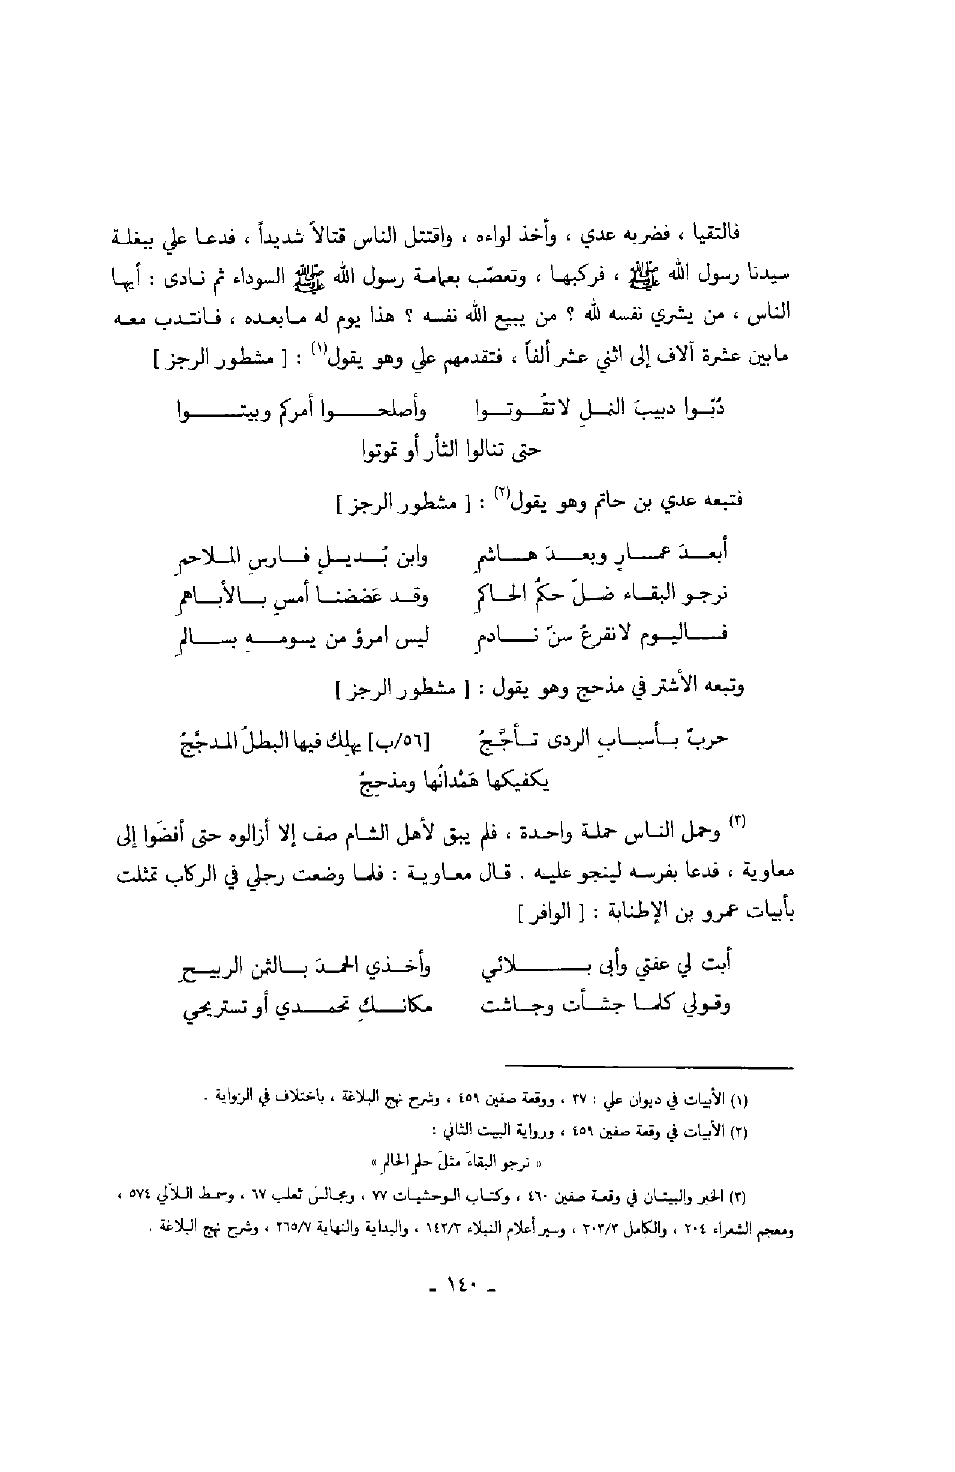 فالتقيا ، فضربه عدي ، وأخذ لواءه ، واقتتل الناس قتالاً شديداً ، فدعا علي ببغلة
سيدنا رسول الله ﷺ ، فركبها ، وتعصّب بعمامة رسول الله ﷺ السوداء ثم نادى : أيها
الناس ، من يشري نفسه لله ؟ من يبيع الله نفسه ؟ هذا يوم له مابعده ، فانتدب معه
مابين عشرة آلاف إلى اثني عشر ألفاً ، فتقدمهم علي وهو يقول(١) : [ مشطور الرجز ]
دُبّوا دبيبَ النمل لاتفُوتوا وأصلحوا أمركم وبيتوا
حتى تنالوا الثأر أو تموتوا
فتبعه عدي بن حاتم وهو يقول(٢) : [ مشطور الرجز ]
أبعدَ عمارٍ وبعدَ هاشمِ وابن بُديلٍ فارسِ الملاحمِ
نرجو البقاء ضلّ حكمُ الحاكمِ وقد عَضضنا أمسِ بالأباهمِ
فاليوم لانقرعُ سنّ نادمِ ليس امرؤ من يومه بسالمِ
وتبعه الأشتر في مذحج وهو يقول : [ مشطور الرجز ]
حربٌ بأسبابِ الردى تأجَّجُ [٥٦/ب] يهلِك فيها البطلُ المدجَّجُ
يكفيكها هَمْدانُها ومذحِجُ
(٣) وحمل الناس حملة واحدة ، فلم يبق لأهل الشام صف إلا أزالوه حتى أفضَوا إلى
معاوية ، فدعا بفرسه لينجو عليه . قال معاوية : فلما وضعت رجلي في الركاب تمثلت
بأبيات عمرو بن الإطنابة : [ الوافر ]
أبت لي عفتي وأبى بلائي وأخذي الحمدَ بالثمن الربيحِ
وقولي كلما جشأت وجاشت مكانكِ تحمدي أو تستريحي
(١) الأبيات في ديوان علي : ٣٧ ، ووقعة صفين ٤٥٩ ، وشرح نهج البلاغة ، باختلاف في الرواية .
(٢) الأبيات في وقعة صفين ٤٥٩ ، ورواية البيت الثاني :
« نرجو البقاءَ مثلَ حلم الحالمِ »
(٣) الخبر والبيتان في وقعة صفين ٤٦٠ ، وكتاب الوحشيات ٧٧ ، ومجالس ثعلب ٦٧ ، وسمط اللآلي ٥٧٤ ،
ومعجم الشعراء ٢٠٤ ، والكامل ٣٠٣/٣ ، وسير أعلام النبلاء ١٤٢/٣ ، والبداية والنهاية ٢٦٥/٧ ، وشرح نهج البلاغة .
- ١٤٠ -